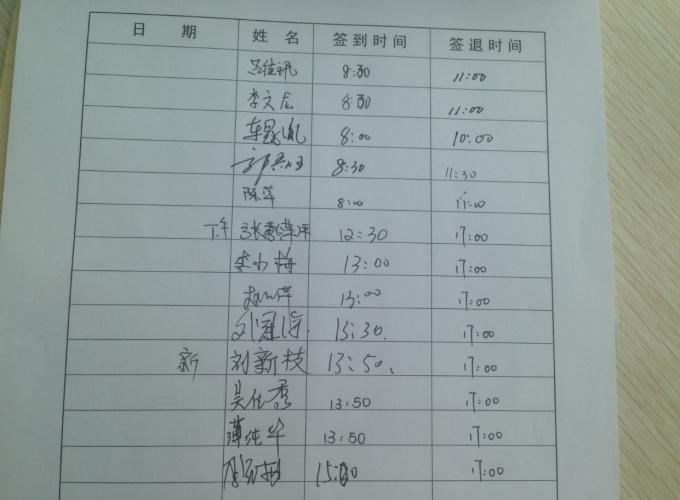 日 期 姓 名 签到时间 签退时间
吕佳讯 8:30 11:00
李文龙 8:30 11:00
车晟胤 8:00 10:00
8:30 11:30
陈萍 8:00 11:00
下午 17:00 12:30
李小梅 13:00 17:00
13:00 17:00
刘冠 13:30. 17:00
新 刘新枝 13:50. 17:00
吴仕秀 13:50 17:00
薄纯华 13:50 17:00
17:00